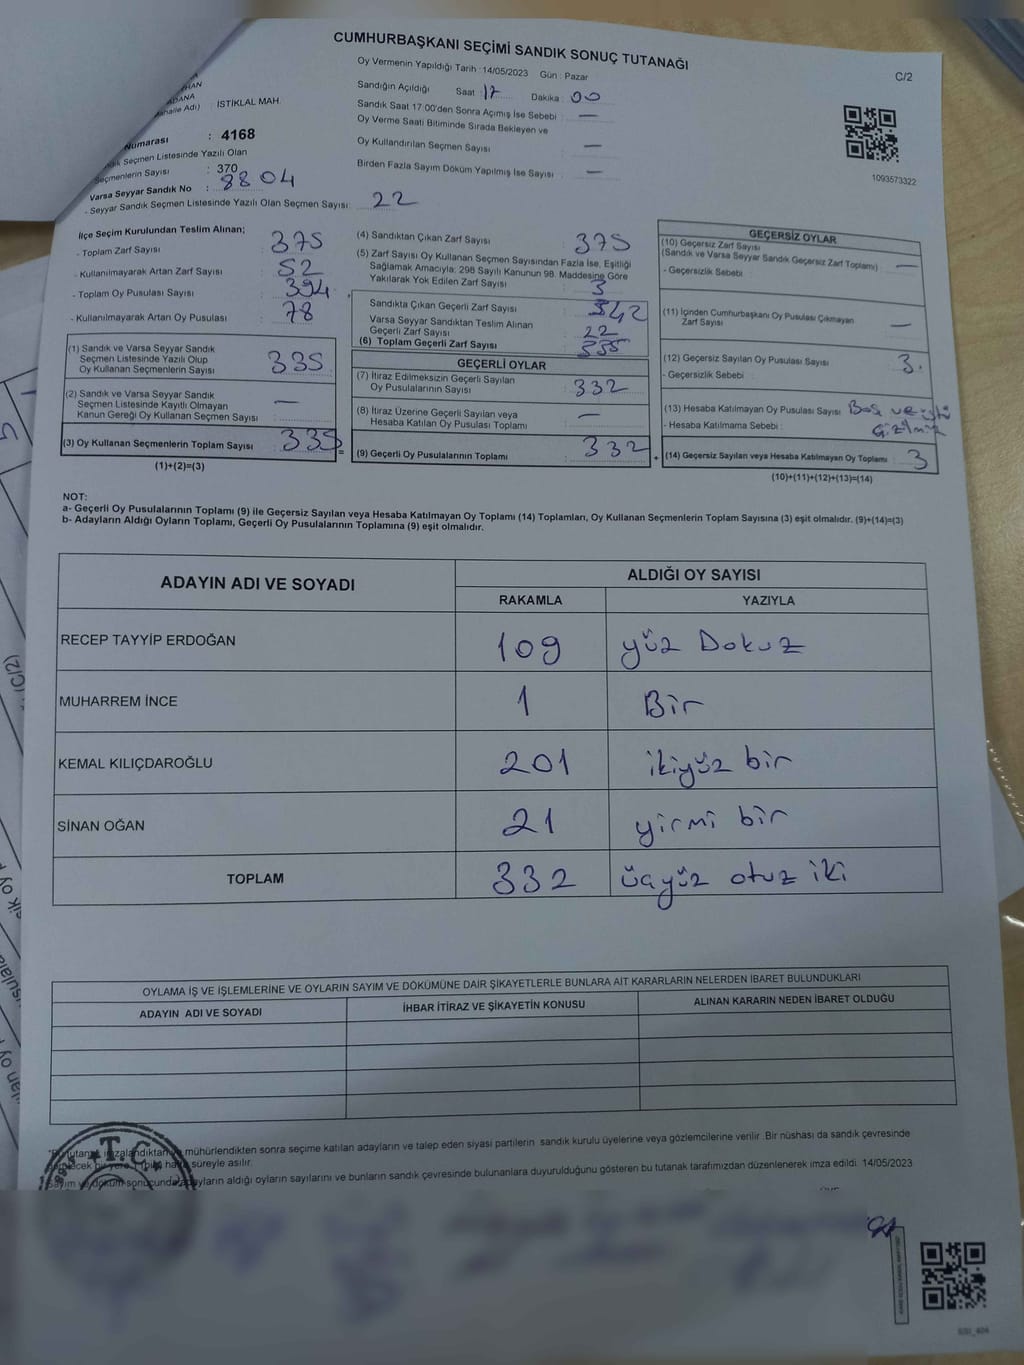 CUMHURBAŞKANI SEÇİMİ SANDIK SONUÇ TUTANAĞI
C/2
Oy Vermenin Yapıldığı Tarih :14/05/2023 Gün : Pazar
Sandığın Açıldığı Saat : 17 Dakika : 00
Sandık Saat 17:00'den Sonra Açımış İse Sebebi : —
Oy Verme Saati Bitiminde Sırada Bekleyen ve
Oy Kullandırılan Seçmen Sayısı : —
Birden Fazla Sayım Döküm Yapılmış İse Sayısı : —
1093573322
HAN
ADANA
Mahalle Adı) İSTİKLAL MAH.
Numarası : 4168
Seçmen Listesinde Yazılı Olan
Seçmenlerin Sayısı : 370
Varsa Seyyar Sandık No : 8804
- Seyyar Sandık Seçmen Listesinde Yazılı Olan Seçmen Sayısı: 22
İlçe Seçim Kurulundan Teslim Alınan;
- Toplam Zarf Sayısı : 375
- Kullanılmayarak Artan Zarf Sayısı : 52
- Toplam Oy Pusulası Sayısı : 394
- Kullanılmayarak Artan Oy Pusulası : 78
(1) Sandık ve Varsa Seyyar Sandık
Seçmen Listesinde Yazılı Olup
Oy Kullanan Seçmenlerin Sayısı : 335
(2) Sandık ve Varsa Seyyar Sandık
Seçmen Listesinde Kayıtlı Olmayan
Kanun Gereği Oy Kullanan Seçmen Sayısı : —
(3) Oy Kullanan Seçmenlerin Toplam Sayısı : 335
(1)+(2)=(3)
(4) Sandıktan Çıkan Zarf Sayısı : 375
(5) Zarf Sayısı Oy Kullanan Seçmen Sayısından Fazla İse, Eşitliği
Sağlamak Amacıyla; 298 Sayılı Kanunun 98. Maddesine Göre
Yakılarak Yok Edilen Zarf Sayısı : 3
Sandıkta Çıkan Geçerli Zarf Sayısı : 342
Varsa Seyyar Sandıktan Teslim Alınan
Geçerli Zarf Sayısı : 22
(6) Toplam Geçerli Zarf Sayısı : 335
GEÇERLİ OYLAR
(7) İtiraz Edilmeksizin Geçerli Sayılan
Oy Pusulalarının Sayısı : 332
(8) İtiraz Üzerine Geçerli Sayılan veya
Hesaba Katılan Oy Pusulası Toplamı : —
(9) Geçerli Oy Pusulalarının Toplamı : 332
GEÇERSİZ OYLAR
(10) Geçersiz Zarf Sayısı
(Sandık ve Varsa Seyyar Sandık Geçersiz Zarf Toplamı) : —
- Geçersizlik Sebebi :
(11) İçinden Cumhurbaşkanı Oy Pusulası Çıkmayan
Zarf Sayısı : —
(12) Geçersiz Sayılan Oy Pusulası Sayısı : 3.
- Geçersizlik Sebebi :
(13) Hesaba Katılmayan Oy Pusulası Sayısı : Boş ve üstü
- Hesaba Katılmama Sebebi : Çizilmiş
(14) Geçersiz Sayılan veya Hesaba Katılmayan Oy Toplamı : 3
(10)+(11)+(12)+(13)=(14)
NOT:
a- Geçerli Oy Pusulalarının Toplamı (9) ile Geçersiz Sayılan veya Hesaba Katılmayan Oy Toplamı (14) Toplamları, Oy Kullanan Seçmenlerin Toplam Sayısına (3) eşit olmalıdır. (9)+(14)=(3)
b- Adayların Aldığı Oyların Toplamı, Geçerli Oy Pusulalarının Toplamına (9) eşit olmalıdır.
ADAYIN ADI VE SOYADI ALDIĞI OY SAYISI
RAKAMLA YAZIYLA
RECEP TAYYİP ERDOĞAN 109 yüz Dokuz
MUHARREM İNCE 1 Bir
KEMAL KILIÇDAROĞLU 201 ikiyüz bir
SİNAN OĞAN 21 yirmi bir
TOPLAM 332 üçyüz otuz iki
OYLAMA İŞ VE İŞLEMLERİNE VE OYLARIN SAYIM VE DÖKÜMÜNE DAİR ŞİKAYETLERLE BUNLARA AİT KARARLARIN NELERDEN İBARET BULUNDUKLARI
ADAYIN ADI VE SOYADI İHBAR İTİRAZ VE ŞİKAYETİN KONUSU ALINAN KARARIN NEDEN İBARET OLDUĞU
T.C.
mühürlendikten sonra seçime katılan adayların ve talep eden siyasi partilerin sandık kurulu üyelerine veya gözlemcilerine verilir. Bir nüshası da sandık çevresinde
süreyle asılır.
adayların aldığı oyların sayılarını ve bunların sandık çevresinde bulunanlara duyurulduğunu gösteren bu tutanak tarafımızdan düzenlenerek imza edildi. 14/05/2023